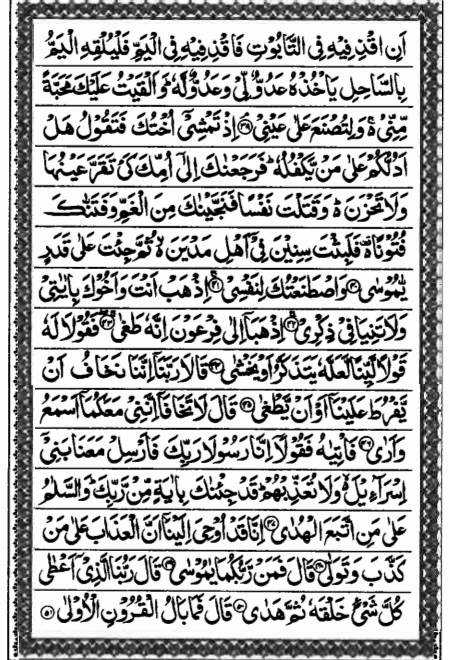 اَنِ اقْذِفِيْهِ فِى التَّابُوْتِ فَاقْذِفِيْهِ فِى الْيَمِّ فَلْيُلْقِهِ الْيَمُّ
بِالسَّاحِلِ يَاْخُذْهُ عَدُوٌّ لِّىْ وَعَدُوٌّ لَّهٗ ؕ وَاَلْقَيْتُ عَلَيْكَ مَحَبَّةً
مِّنِّىْ ۚ۬ وَلِتُصْنَعَ عَلٰى عَيْنِىْ ۘ‏﴿۳۹﴾ اِذْ تَمْشِىْۤ اُخْتُكَ فَتَقُوْلُ هَلْ
اَدُلُّكُمْ عَلٰى مَنْ يَّكْفُلُهٗ ؕ فَرَجَعْنٰكَ اِلٰٓى اُمِّكَ كَىْ تَقَرَّ عَيْنُهَا
وَلَا تَحْزَنَ ۬ؕ وَقَتَلْتَ نَفْسًا فَنَجَّيْنٰكَ مِنَ الْغَمِّ وَفَتَنّٰكَ
فُتُوْنًا ۬ فَلَبِثْتَ سِنِيْنَ فِىْۤ اَهْلِ مَدْيَنَ ۙ۬ ثُمَّ جِئْتَ عَلٰى قَدَرٍ
يّٰمُوْسٰى ﴿۴۰﴾ وَاصْطَنَعْتُكَ لِنَفْسِىْ ۚ ﴿۴۱﴾ اِذْهَبْ اَنْتَ وَاَخُوْكَ بِاٰيٰتِىْ
وَلَا تَنِيَا فِىْ ذِكْرِىْ ۚ ﴿۴۲﴾ اِذْهَبَاۤ اِلٰى فِرْعَوْنَ اِنَّهٗ طَغٰى ۖۚ ﴿۴۳﴾ فَقُوْلَا لَهٗ
قَوْلًا لَّيِّنًا لَّعَلَّهٗ يَتَذَكَّرُ اَوْ يَخْشٰى ﴿۴۴﴾ قَالَا رَبَّنَاۤ اِنَّنَا نَخَافُ اَنْ
يَّفْرُطَ عَلَيْنَاۤ اَوْ اَنْ يَّطْغٰى ﴿۴۵﴾ قَالَ لَا تَخَافَاۤ اِنَّنِىْ مَعَكُمَاۤ اَسْمَعُ
وَاَرٰى ﴿۴۶﴾ فَاْتِيٰهُ فَقُوْلَاۤ اِنَّا رَسُوْلَا رَبِّكَ فَاَرْسِلْ مَعَنَا بَنِىْۤ
اِسْرَآءِيْلَ ۙ۬ وَلَا تُعَذِّبْهُمْ ؕ قَدْ جِئْنٰكَ بِاٰيَةٍ مِّنْ رَّبِّكَ ؕ وَالسَّلٰمُ
عَلٰى مَنِ اتَّبَعَ الْهُدٰى ﴿۴۷﴾ اِنَّا قَدْ اُوْحِىَ اِلَيْنَاۤ اَنَّ الْعَذَابَ عَلٰى مَنْ
كَذَّبَ وَتَوَلّٰى ﴿۴۸﴾ قَالَ فَمَنْ رَّبُّكُمَا يٰمُوْسٰى ﴿۴۹﴾ قَالَ رَبُّنَا الَّذِىْۤ اَعْطٰى
كُلَّ شَىْءٍ خَلْقَهٗ ثُمَّ هَدٰى ﴿۵۰﴾ قَالَ فَمَا بَالُ الْقُرُوْنِ الْاُوْلٰى ﴿۵۱﴾